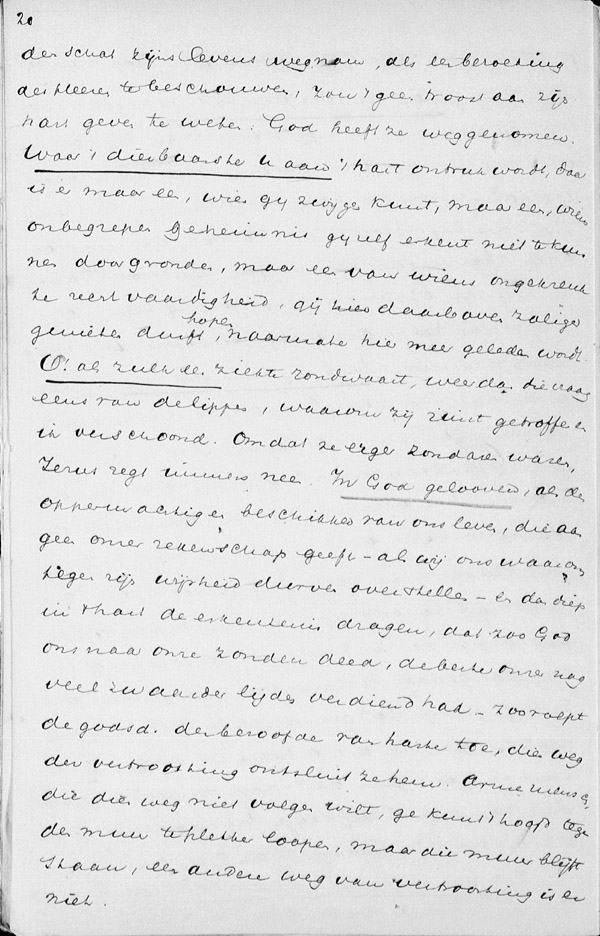 20
den schat zijns levens wegnam, als een beroering
des Heeren te beschouwen, zou 't geen troost aan zijn
hart geven te weten: God heeft ze weggenomen.
Waar 't dierbaarste U aan 't hart ontrukt wordt, daar
is er maar een, wien gij zwijgen kunt, maar een, wiens
onbegrepen geheimnis gij zelf erkent niet te kun
nen doorgronden, maar een van wiens ongekrenk
te rechtvaardigheid, gij hier daarboven zaliger
genieten durft hopen, naarmate hier meer geleden wordt.
O! als zulk een ziekte rondwaart, weer dan die vraag
eens van de lippen, waarom zij zijnt getroffen en
ik verschoond. Omdat ze erger zondaren waren,
Jezus zegt immers nee. In God gelooven, als den
oppermachtigen beschikker van ons leven, die aan
geen onzer rekenschap geeft - als wij ons waarom?
tegen zijn wijsheid durven overstellen - en dan diep
in 't hart de erkentenis dragen, dat zoo God
ons naar onze zonden deed, de beste onzer nog
veel zwaarder lijden verdiend had - zoo roept
de godsd. den beroofde van harte toe, dien weg
der vertroosting ontsluit ze hem. Arme mensch,
die dien weg niet volgen wilt, ge kunt 't hoofd tegen
den muur te pletter loopen, maar die muur blijft
staan, een andere weg van vertroosting is er
niet.